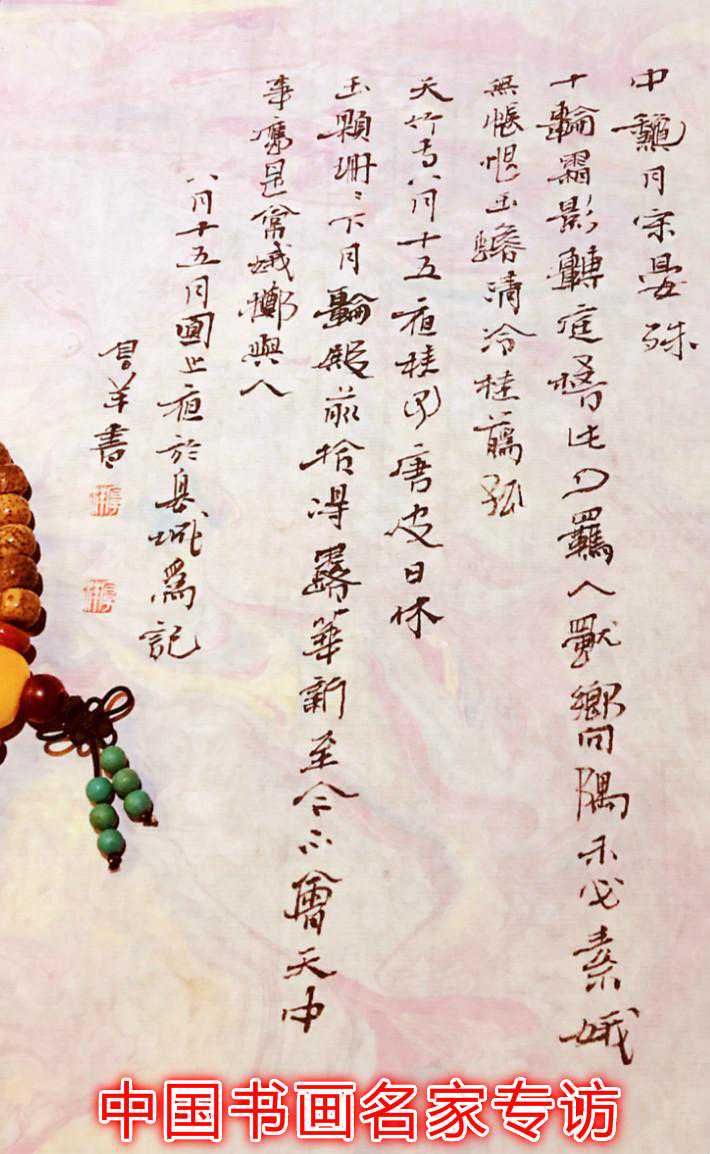 中龝月宋晏殊
十輪霜影轉庭梧此夕羈人獨嚮隅未必素娥
無悵恨玉蟾清冷桂蘤孤
天竹寺八月十五夜桂子唐皮日休
玉顆珊〻下月輪殿前拾得露華新至今不會天中
事應是常娥擲與人
八月十五月圓之夜於縣城為記
羊書
中国书画名家专访